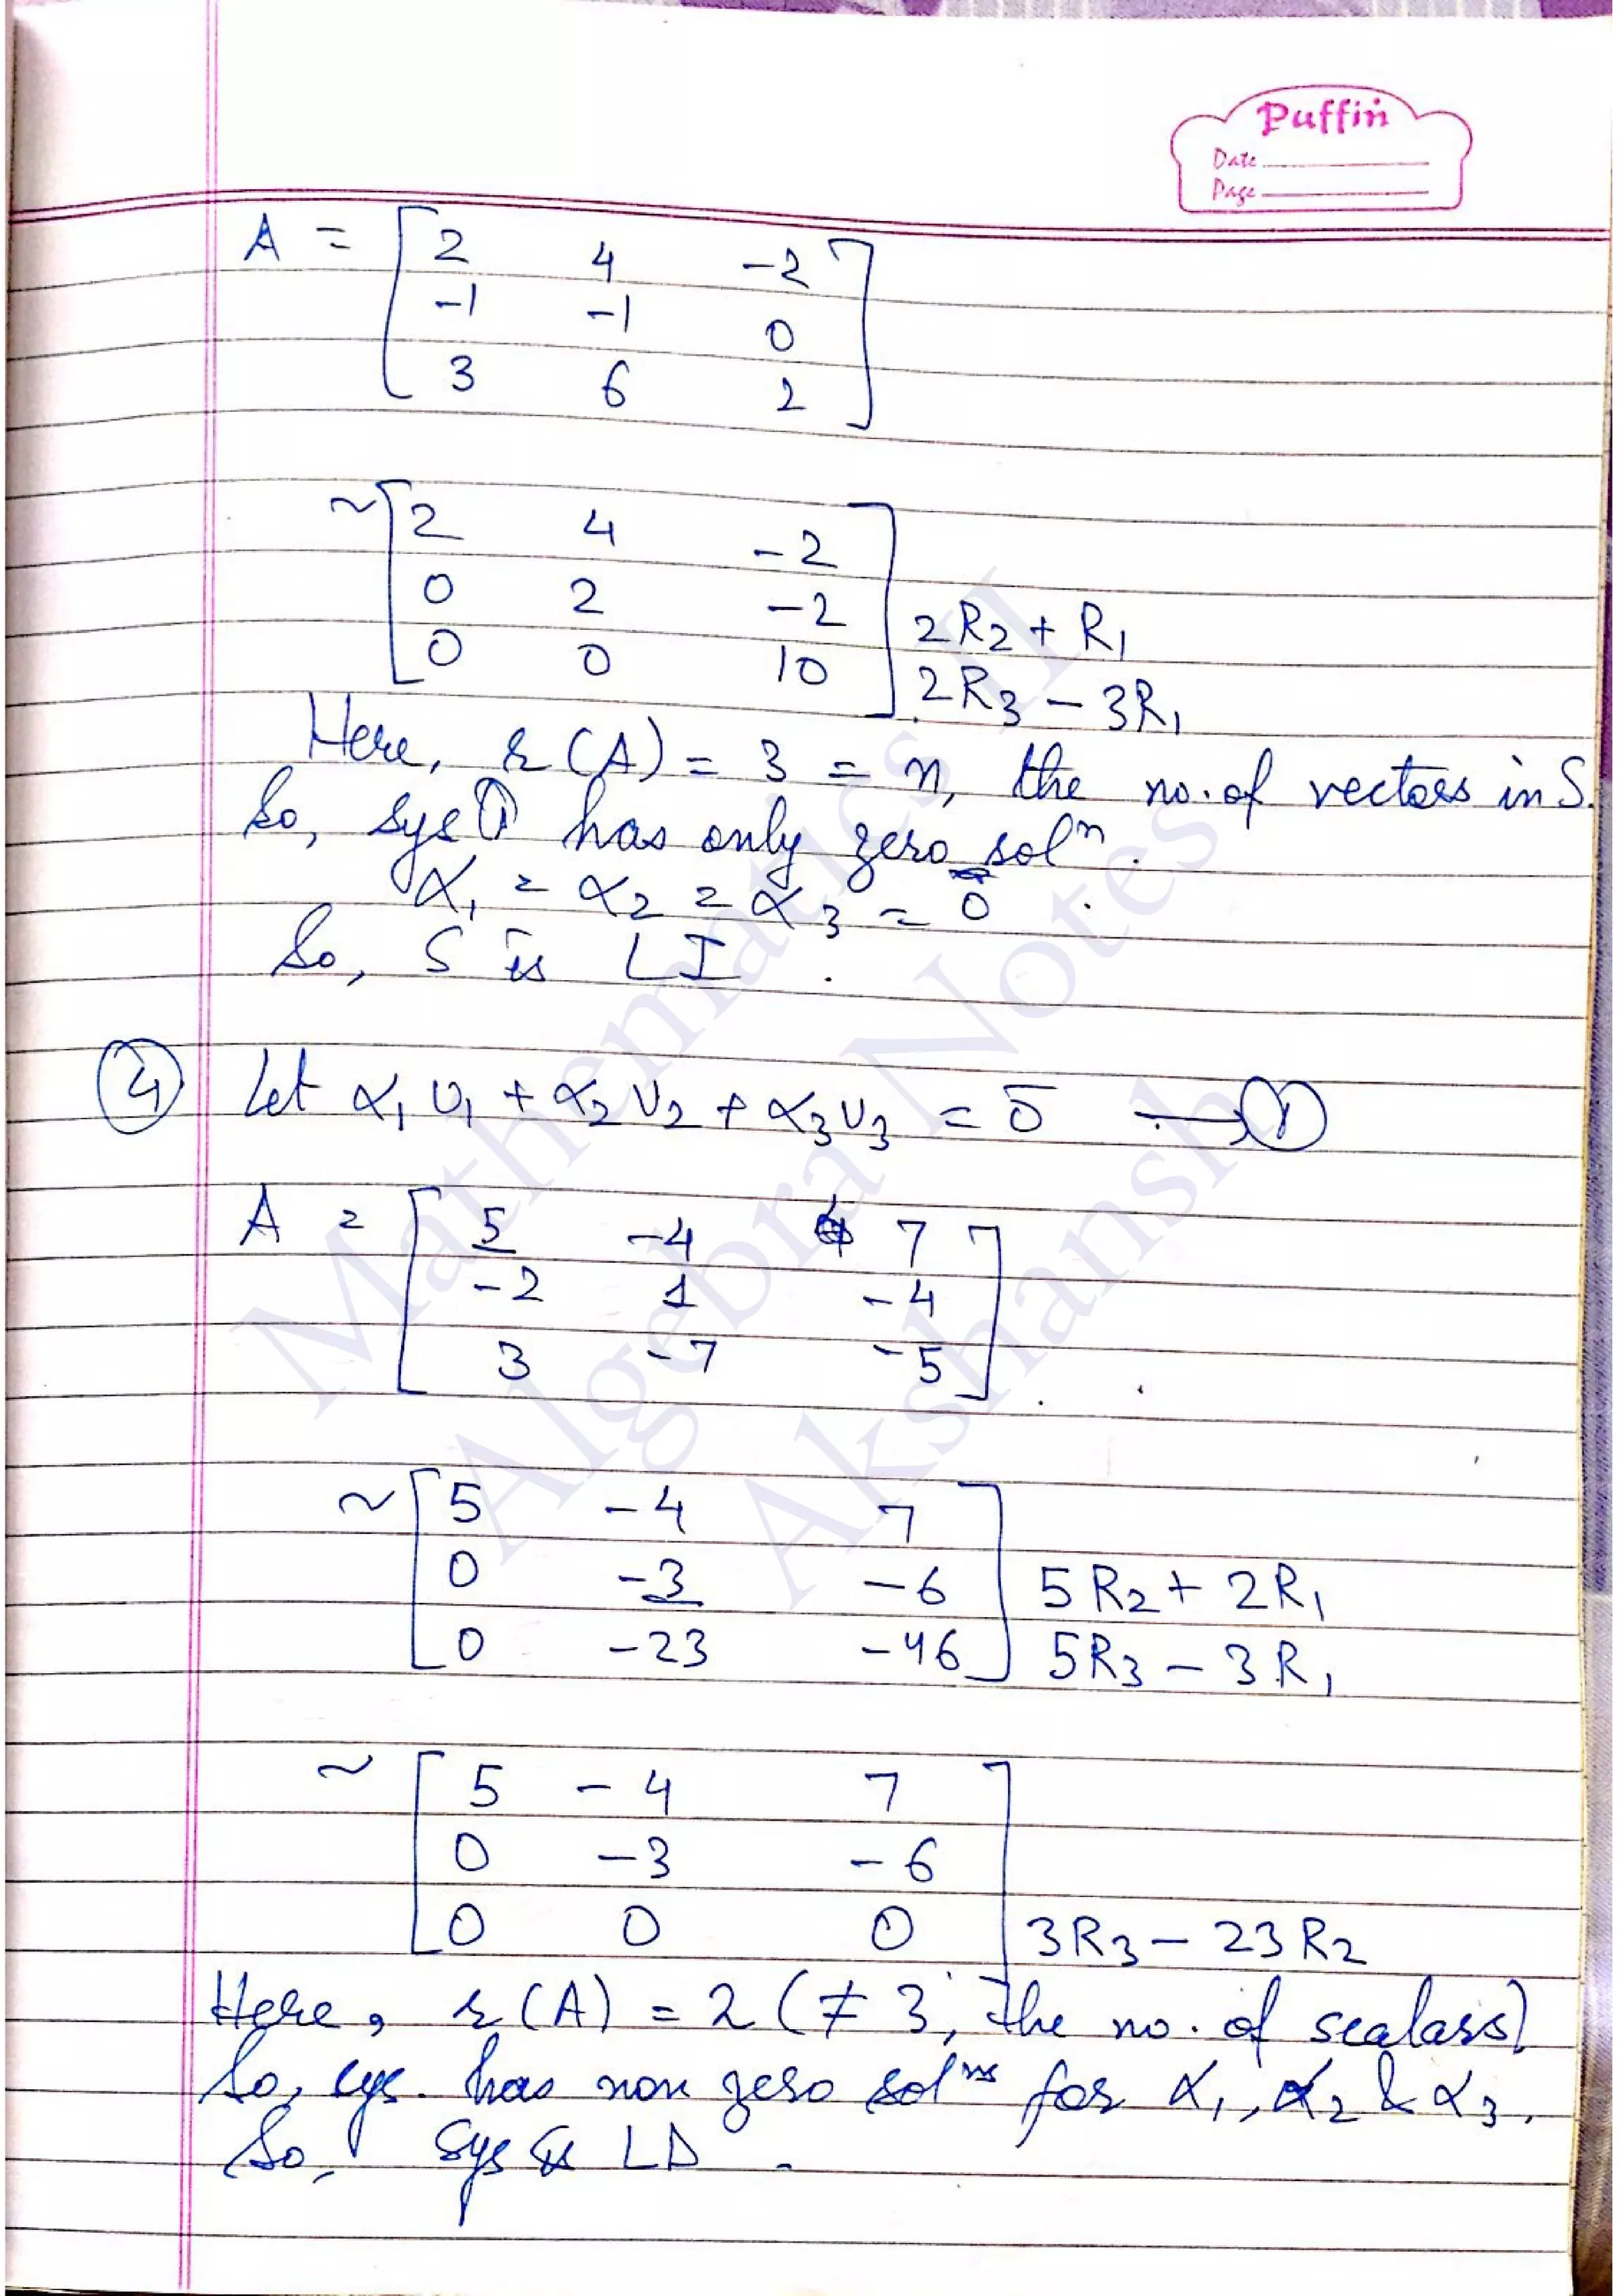 Puffin
Date
Page
A = [ 2 4 -2
-1 -1 0
3 6 2 ]
~ [ 2 4 -2
0 2 -2 2R2 + R1
0 0 10 ] 2R3 - 3R1
Here, r(A) = 3 = n, the no. of vectors in S.
So, sys ① has only zero solⁿ.
α1 = α2 = α3 = 0
So, S is LI.
④ Let α1 v1 + α2 v2 + α3 v3 = 0̄ → ①
A = [ 5 -4 7
-2 1 -4
3 -7 -5 ]
~ [ 5 -4 7
0 -3 -6 5R2 + 2R1
0 -23 -46 ] 5R3 - 3R1
~ [ 5 -4 7
0 -3 -6
0 0 0 ] 3R3 - 23R2
Here, r(A) = 2 (≠ 3, the no. of scalars)
So, sys. has non zero solⁿˢ for α1, α2 & α3.
So, sys is LD.
Mathematics II
Algebra Notes
Akshansh